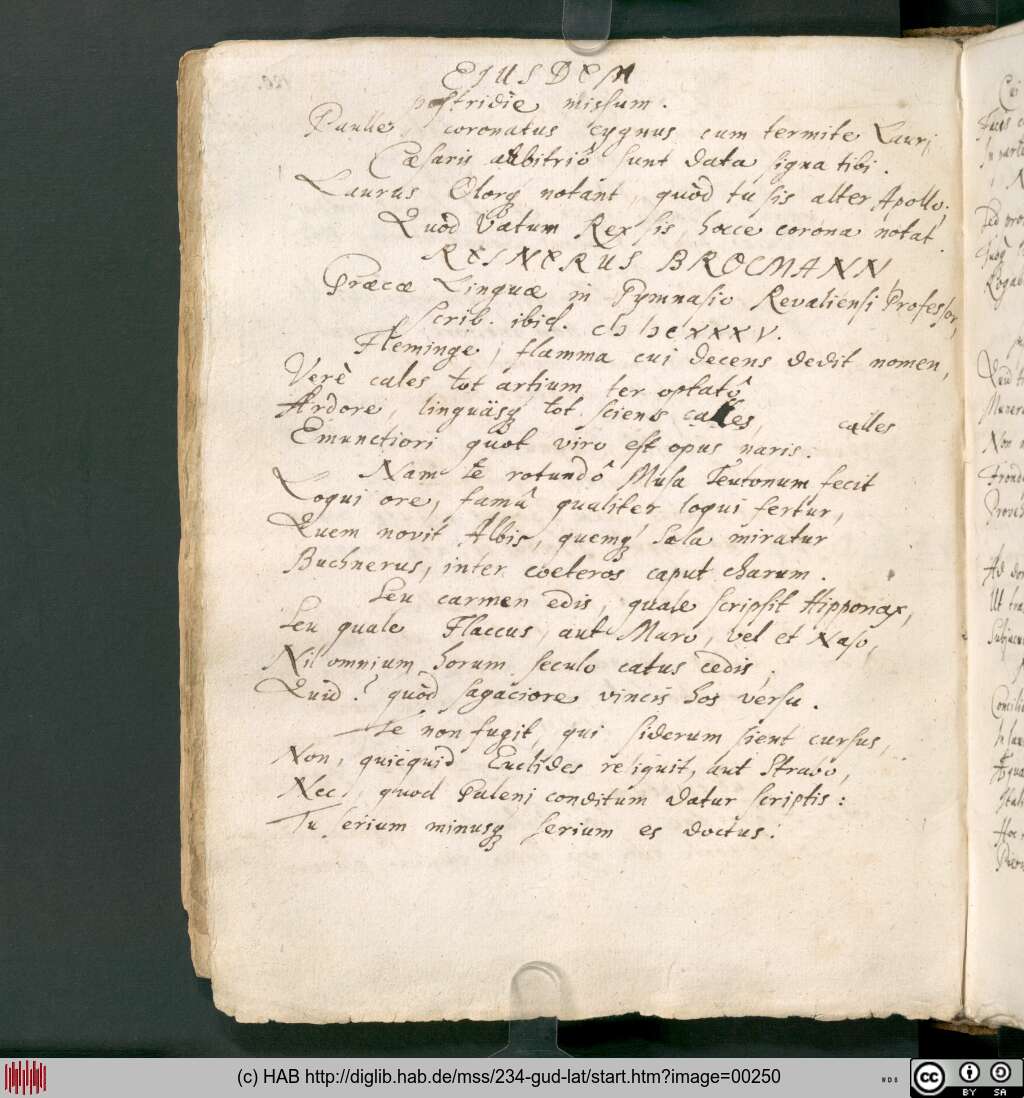 EJUSDEM
postridie missum.
Paule, coronatus cygnus cum termite Lauri
Cæsaris arbitriô sunt data signa tibi.
Laurus Olorq; notant, quòd tu sis alter Apollo;
Quòd Vatum Rex sis, hocce corona notat.
REINERUS BROCMANN
Græcæ Linguæ in Gymnasio Revaliensi Professor,
scrib. ibid. cIɔ Iɔc XXXV.
Fleminge, flamma cui decens dedit nomen,
Verè cales tot artium ter optatô
Ardore, linguäsq; tot sciens calles, calles
Emunctiori quot viro est opus naris.
Nam te rotundô Musa Teutonum fecit
Loqui ore, famâ qualiter loqui fertur,
Quem novit Albis, quemq; Sala miratur
Buchnerus, inter coeteros caput charum.
Seu carmen edis, quale scripsit Hipponax,
Seu quale Flaccus, aut Maro, vel et Naso,
Nil omnium horum seculo catus cedis,
Quid? quòd sagaciore vincis hos versu.
Te non fugit, qui siderum sient cursus,
Non, quicquid Euclides reliquit, aut Strabo,
Nec, quod Galeni conditum datur scriptis:
Tu serium minusq; serium es doctus:
(c) HAB http://diglib.hab.de/mss/234-gud-lat/start.htm?image=00250
cc BY SA